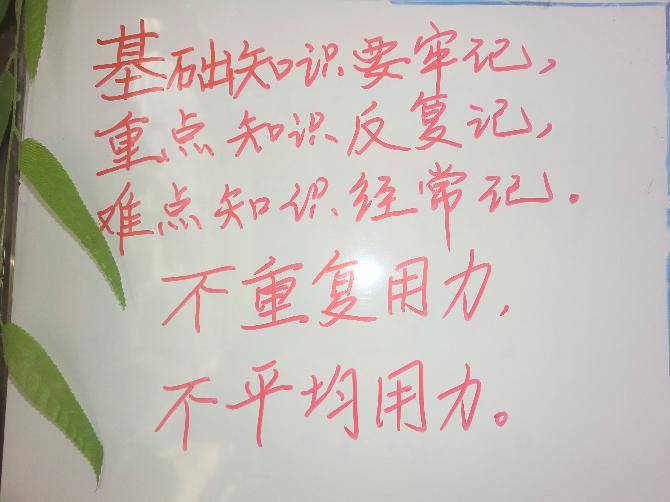 基础知识要牢记，
重点知识反复记，
难点知识经常记。
不重复用力，
不平均用力。